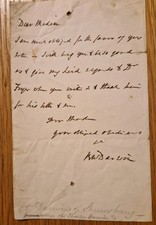 Dear Madam
I am much obliged for the favor of your
note — I will beg you to be so good
as to give my kind regards to Dr
Fryer when you write to & thank him
for his letter & am
Dear Madam
your obliged & obedient
R W Darwin
Darwin of Shrewsbury